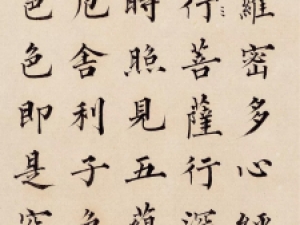 羅密多心經
行菩薩行深
時照見五蘊
厄舍利子色
色色即是空